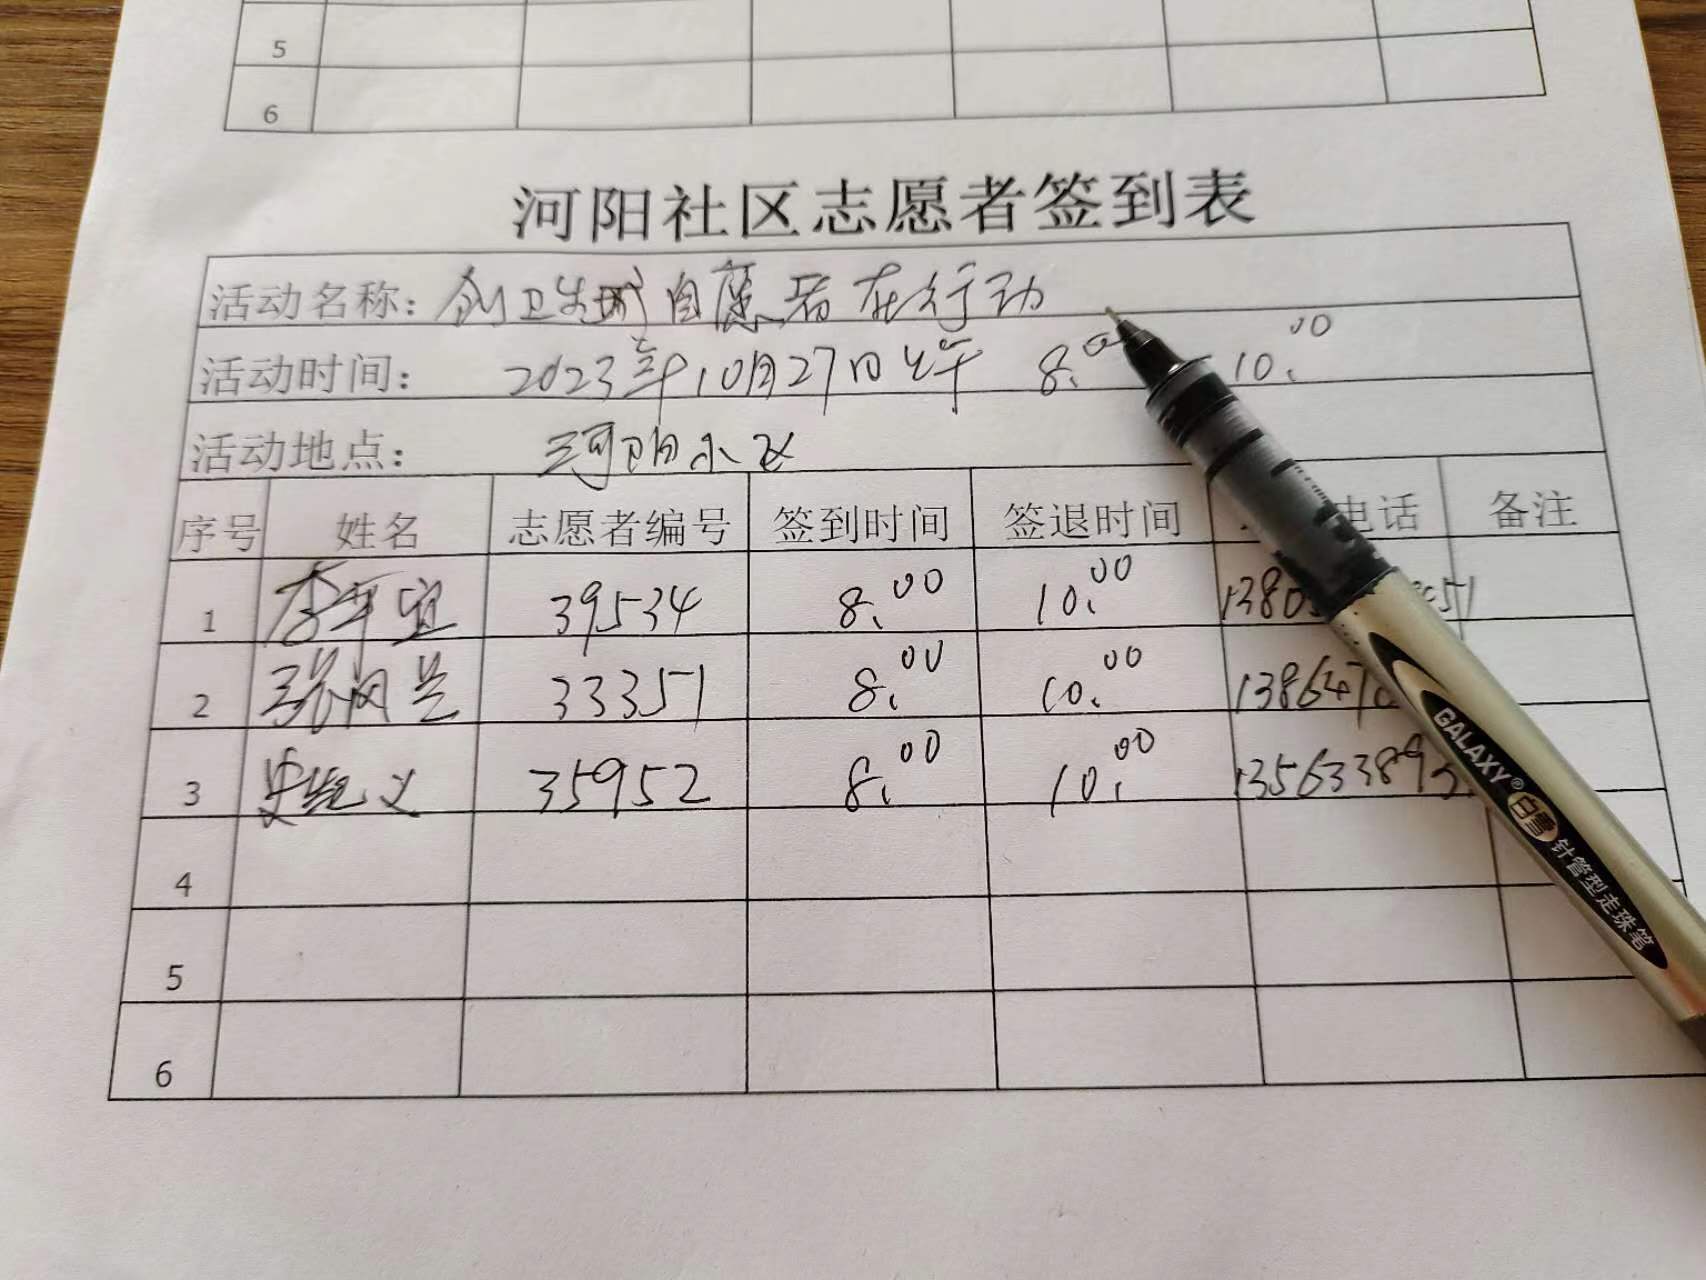 5
6
河阳社区志愿者签到表
活动名称：创卫生城自愿者在行动
活动时间： 2023年10月27日上午 8.00 — 10.00
活动地点： 河阳小区
序号 姓名 志愿者编号 签到时间 签退时间 电话 备注
1 李平宜 39534 8.00 10.00
2 张闵兰 33351 8.00 10.00
3 史继义 35952 8.00 10.00
4
5
6
GALAXY® 白雪 针管型走珠笔